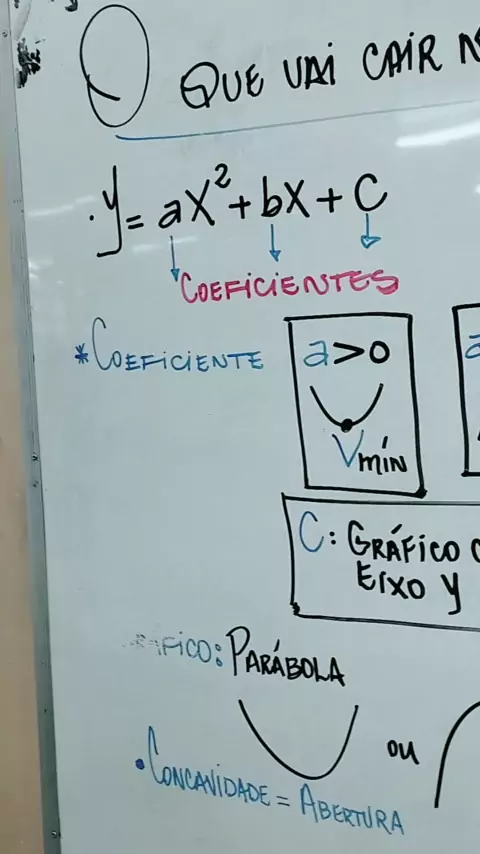 QUE VAI CAIR
. y = ax² + bx + c
COEFICIENTES
* COEFICIENTE
a > 0
Vmín
C: GRÁFICO
EIXO y
FICO: PARÁBOLA
ou
• CONCAVIDADE = ABERTURA